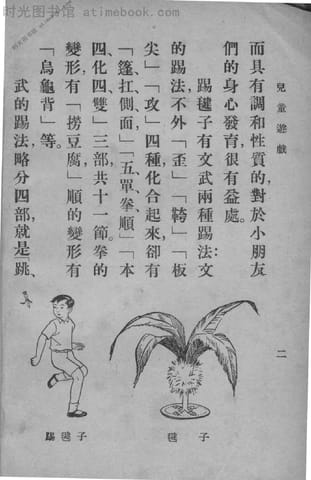 时光图书馆 atimebook.com
兒童遊戲
二
而具有調和性質的,對於小朋友
們的身心發育,很有益處。
踢毽子有文武兩種踢法:文
的踢法,不外「歪」「䠀」「板
尖」「攻」四種,化合起來,卻有
「篷扛側面」「五單拳順」「本
四化四雙」三部,共十一節。拳的
變形有「撈豆腐」順的變形有
「烏龜背」等。
武的踢法,略分四部,就是「跳、
毽子
踢毽子